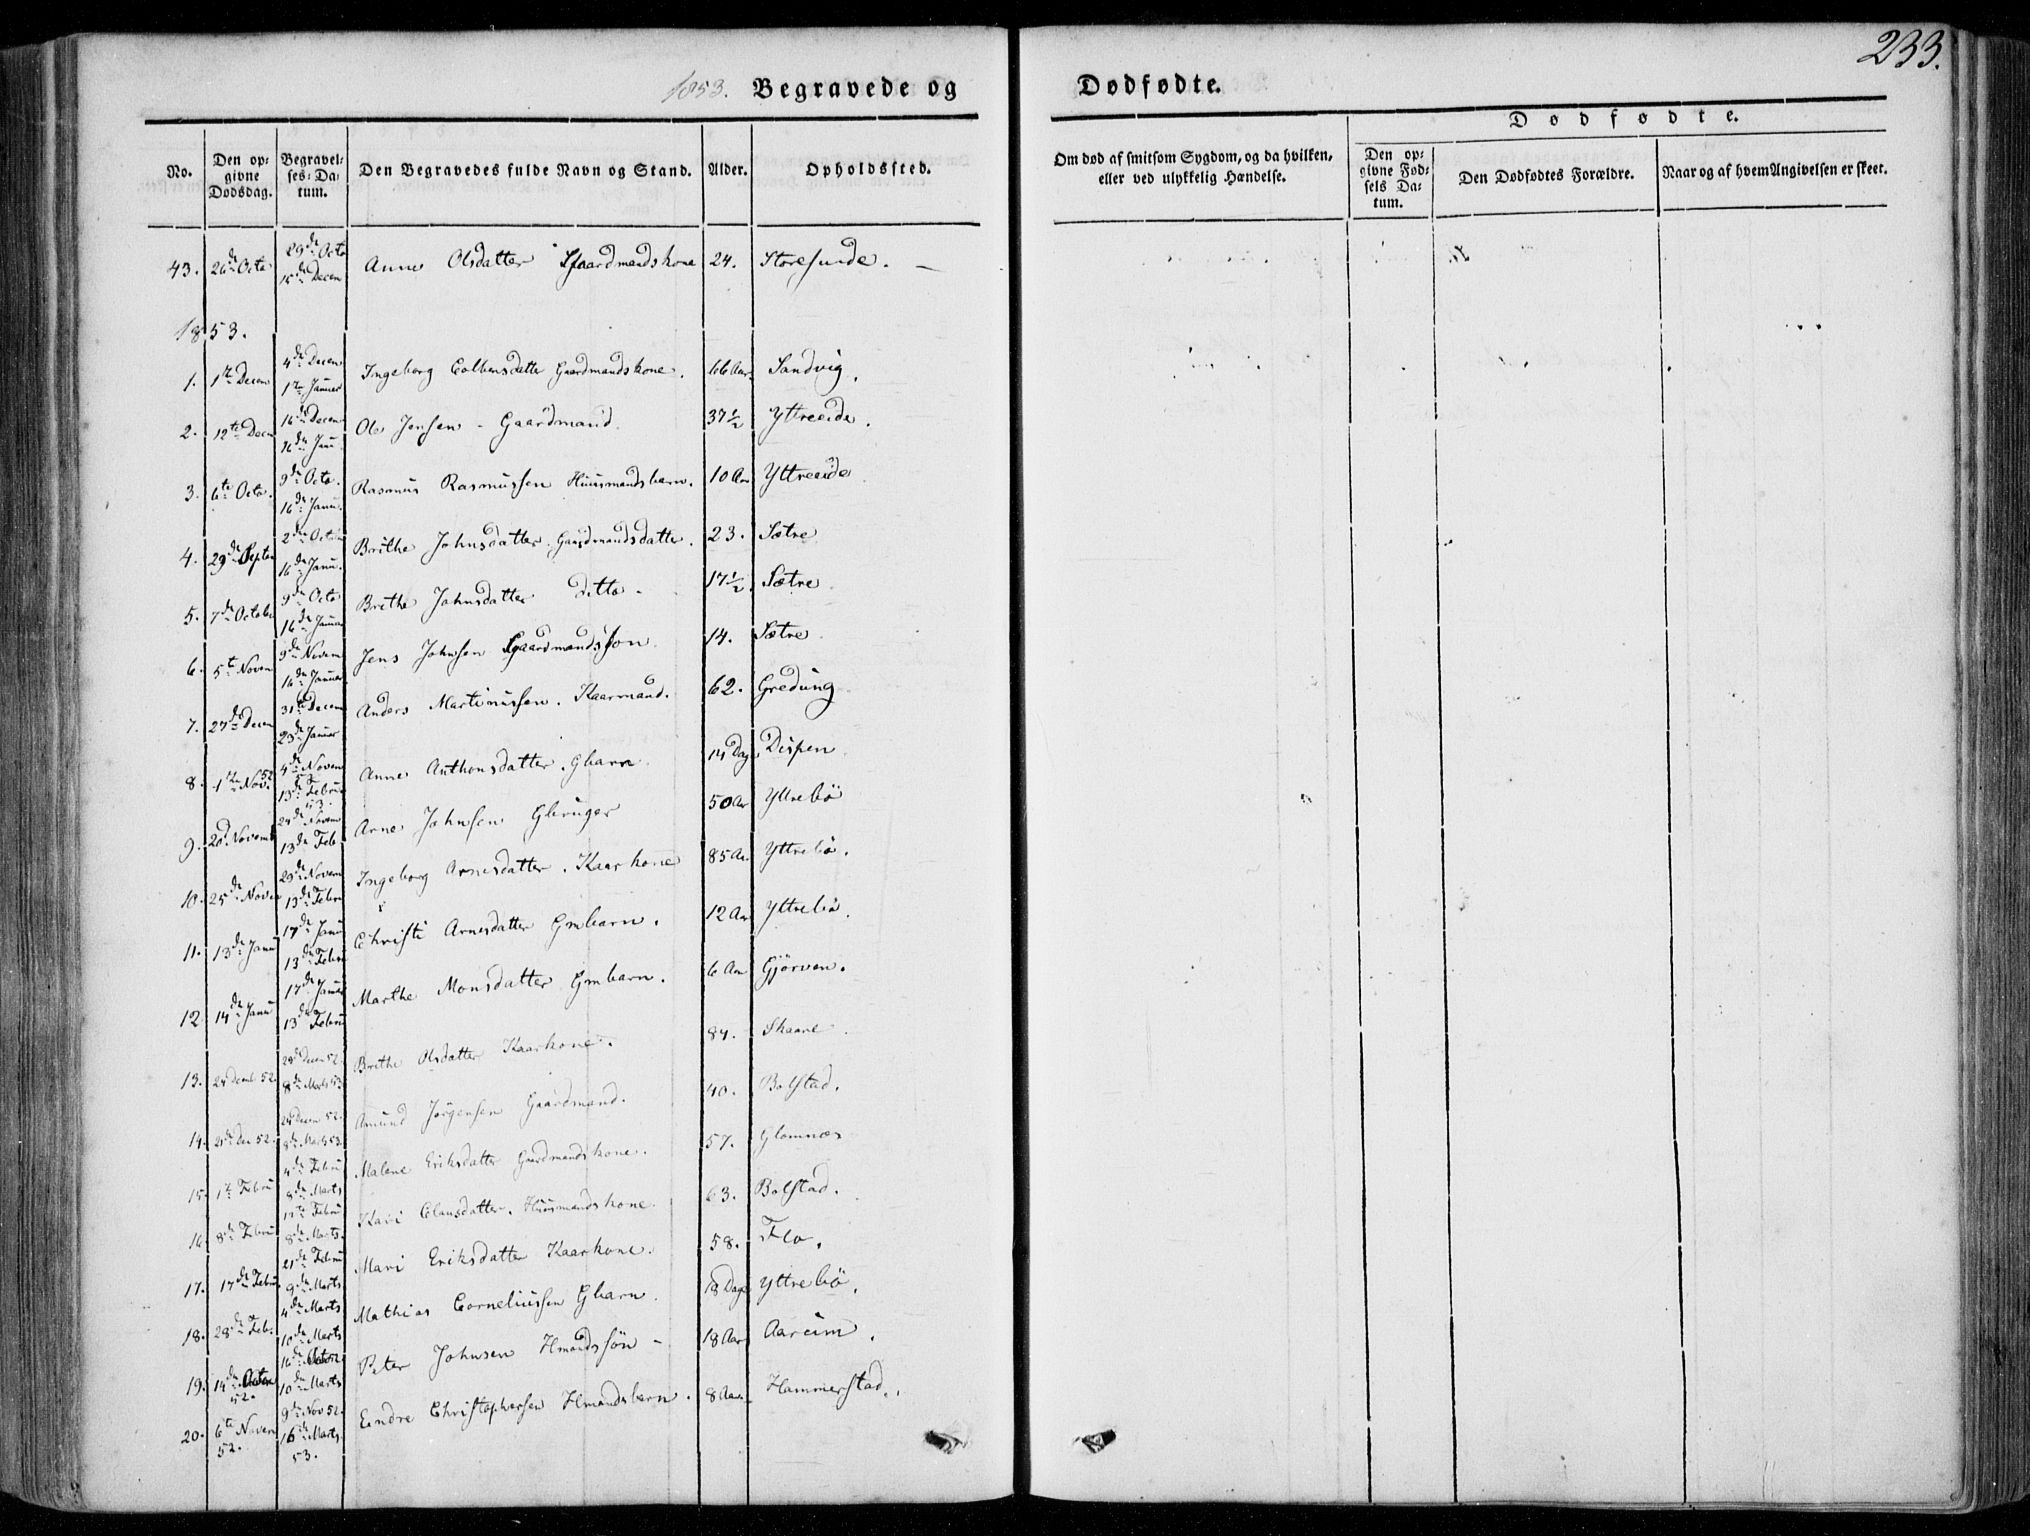 233.
1853. Begravede og Dødfødte.
No. Den opgivne Dødsdag. Begravelses-Datum. Den Begravedes fulde Navn og Stand. Alder. Opholdssted. Om død af smitsom Sygdom, og da hvilken, eller ved ulykkelig Hændelse. Dødfødte.
Den opgivne Fødsels Datum. Den Dødfødtes Forældre. Naar og af hvem Angivelsen er skeet.
43. 26de Octo 29de Octo 15de Decem Anne Olsdatter Gaardmandskone 24. Storesunde. —
1853.
1. 1te Decem 4de Decem 1te Januer Ingeborg Colbensdatter Gaardmandskone. 66 Aar. Sandvig.
2. 12te Decem 16de Decem 16de Janu Ole Jensen - Gaardmand. 37½ Yttreeide.
3. 6te Octo. 9de Octo. 16de Janu. Rasmus Rasmussen Huusmandsbarn. 10 Aar Yttreeide
4. 29de Septem 2de Octobe 16de Janu. Brithe Johnsdatter. Gaardmandsdatter. 23. Sætre
5. 7de October 9de Octo 16de Januar Brithe Johnsdatter ditto - 17½ Sætre
6. 5te Novem 9de Novem 16de Januer Jens Johnsen Gaardmandsson. 14. Sætre
7. 27de Decem 31te Decem 23de Januer Anders Martinussen. Kaarmand. 62. Greding
8. 1te Nov. 52 4de Novem 52 13de Febru 53. Anne Anthonsdatter. Gbarn. 14 Dag. Dispen
9. 20d. Novemb 24de Novem 13de Feb. Arne Johnsen Gbruger 50 Aar Yttrebö
10. 25de Novem 29de Novem 13de Febru Ingeborg Arnesdatter. Kaarkone 85 Aa. Yttrebö.
11. 13de Janu 17de Janu 13de Febru Christi Arnesdatter Gmbarn. 12 Aar Yttrebö.
12 14de Janu 17de Januer 13de Febru Marthe Monsdatter Gmbarn. 6 Aar Gjørven.
13. 24 Decmb. 52. 28de Decem 52. 8de Marts 53. Brithe Olsdatter Kaarkone. 84. Skaare.
14. 21de Dec 52. 24 Decem 52. 8de Marts 53. Amund Jørgensen Gaardmand. 40. Bolstad.
15. 1te Febru 4de Febru 8de Marts Malene Eriksdatter Gaardmandskone. 57. Glomnæs
16 8de Febru 12te Febru 8de Marts. Kari Clausdatter. Huusmandskone. 63. Bolstad.
17. 17de Febru 21de Febru 9de Marts Mari Eriksdatter Kaarkone. 58. Flo.
18. 28de Feb. 4de Marts 10de Marts Mathias Corneliussen Gbarn. 18 Dage Yttrebö.
19. 14de 52. 16de 10de Marts Peter Johnsen Hmandssön - 18 Aar Aarum.
20. 6te Novem 52. 9de Nov 52. 16de Marts. 53. Endre Christophersen Hmandsbarn. 8 Aar. Hammerstad.